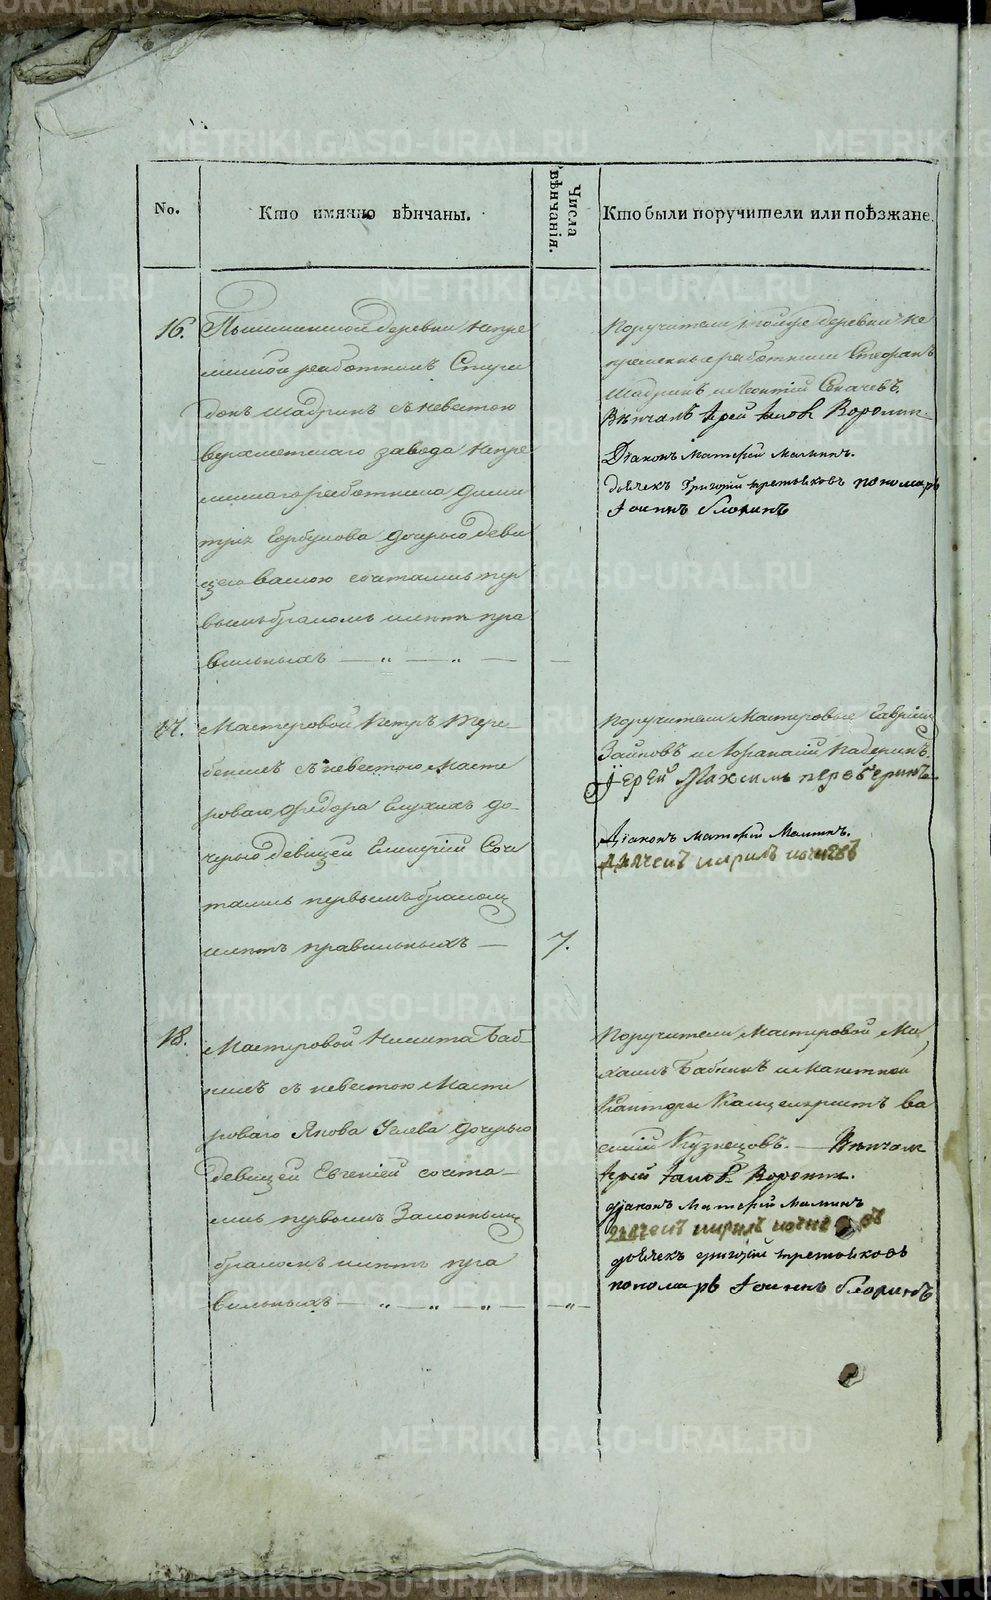 No.
Кто имянно вѣнчаны.
Числа вѣнчанія.
Кто были поручители или поѣзжане.
16.
Пышминской деревни непре
менной работникъ Спири
донъ Шадринъ съ невестою
верхисетскаго завода непре
меннаго работника Дими
трія Горбунова дочерью деви
цею сочтались пер
вымъ бракомъ летъ пра
вильныхъ — „ — „ — —
Поручители тойже деревни не
пременные работники Стефанъ
Шадринъ и Леонтий
Вѣнчалъ Iерей Iаковъ Воронин.
Дiаконъ Матфiй Малинъ.
дьячекъ Григорiй Третьяковъ пономарь
Iоаннъ Блонинъ
17.
Мастеровой Петръ Тере
бенинъ съ невестою масте
роваго Федора Глухихъ до-
черью девицей Гликерiей Соч
тались первымъ бракомъ
летъ правильныхъ —
7.
Поручители Мастеровые Гаврiилъ
Зайковъ и Афанасiй Падеринъ
Iерей Максимъ
Дiаконъ Матфiй Малинъ.
дьячекъ Кирилъ
18.
Мастеровой Никита Баб
кинъ съ невестою Масте
роваго Якова дочерью
девицей Евгенiей сочта—
лись первымъ Законнымъ
бракомъ летъ пра
вильныхъ — „ — „ — „ — — „ —
Поручители Мастеровой Ми
хаилъ Бабкинъ и
Канторы Канцеляристъ Ва
силiй Кузнецовъ. — Вѣнчалъ
Iерей Iаковъ Воронин.
дiаконъ Матфiй Малинъ
дьячекъ Кирилъ
дьячекъ григорiй третьяковъ
пономарь Iоаннъ Блонинъ
METRIKI.GASO-URAL.RU